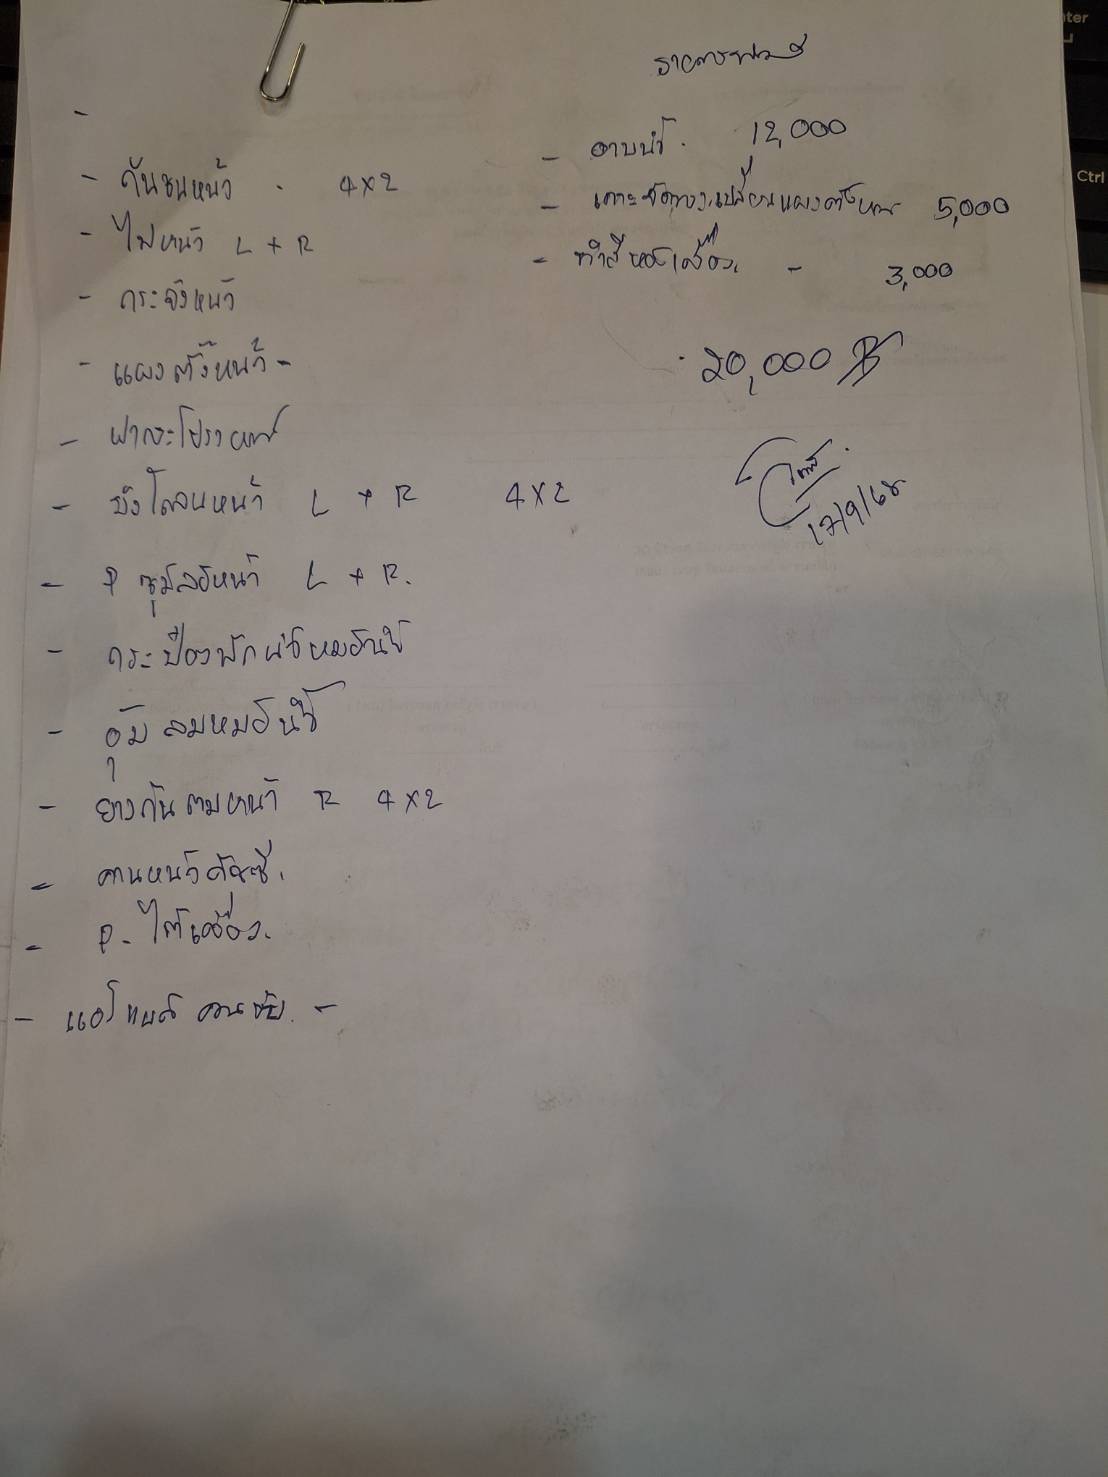 - กันชนหน้า . 4x2
- ไฟหน้า L + R
- กระจังหน้า
- แผงตั้งหน้า -
- ฝากระโปรงหน้า
- บังโคลนหน้า L + R 4x2
- P ซุ้มล้อหน้า L + R.
- กระป๋องพักน้ำหม้อน้ำ
- อุ้มลมหม้อน้ำ
- ยางกัน หน้า R 4x2
- คานหน้าคัชซี.
- P. ใต้เครื่อง.
- แอร์
- อาบน้ำ . 12,000
- เคาะ เปลี่ยนแผงตั้งหน้า 5,000
- ทำสีห้องเครื่อง. - 3,000
20,000 ฿
17/9/68